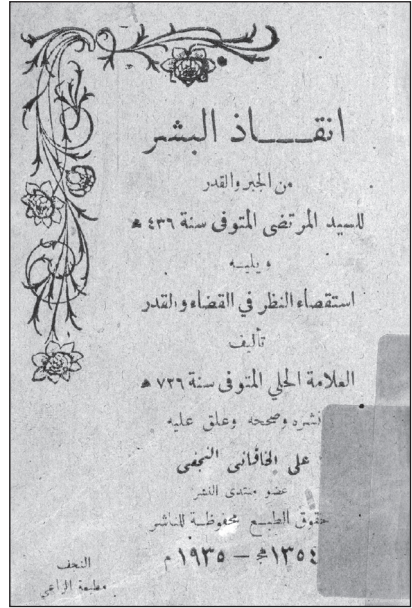 انقـــــاذ البشر
من الجبر والقدر
للسيد المرتضى المتوفى سنة ٤٣٦ هـ
ويليـه
استقصاء النظر في القضاء والقدر
تأليف
العلامة الحلي المتوفى سنة ٧٢٦ هـ
نشره وصححه وعلق عليه
علي الخاقاني النجفي
عضو منتدى النشر
حقوق الطبـع محفوظـة للناشر
١٣٥٤هـ – ١٩٣٥ م
النجف
مطبعة الراعي